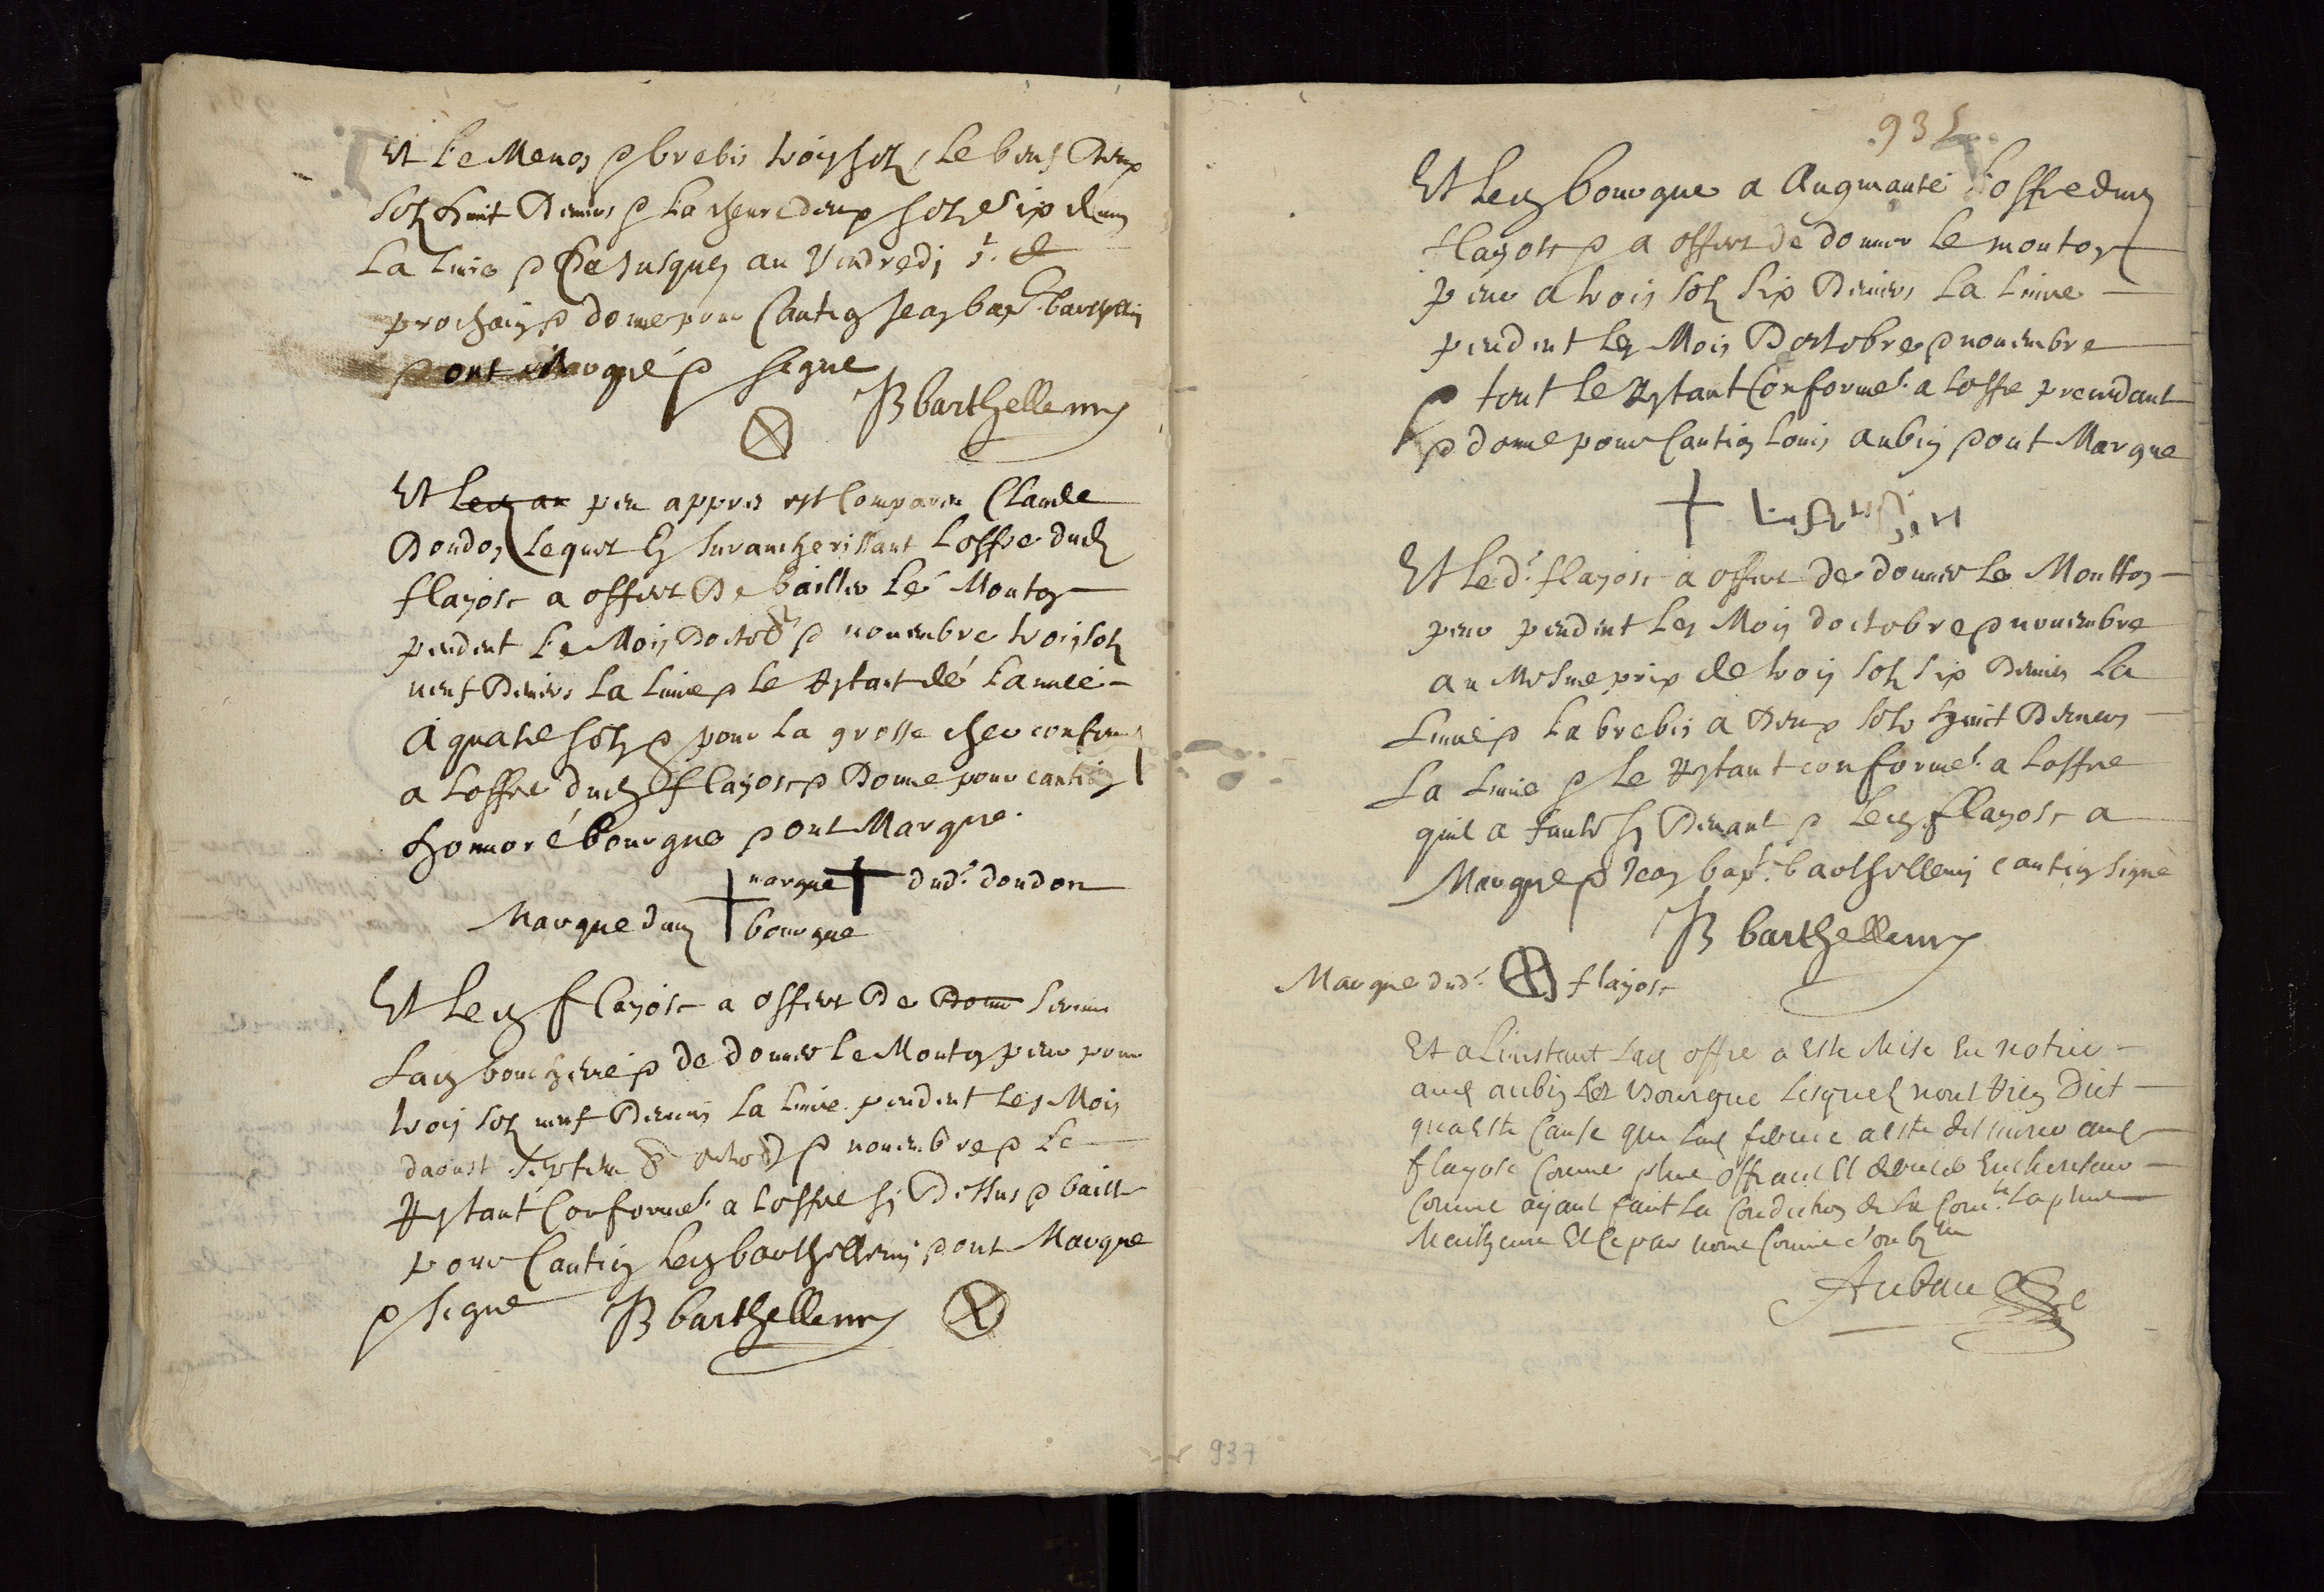 Et Le Menon & brebis trois solz, Le beuf deux
solz huit deniers & La cheure deux solz six den
La Liure & Ce Jusques au Vendredj st. de
prochain & donne pour Caution Jean bapt. barthellemi
& ont Marqué & signe
JB barthellemy
Et peu appres est Comparu Claude
Doudon Lequel En surancherissant Loffre dud
flayosc a offert De bailler Le Mouton
pendent Le Mois Doctob & nouembre trois solz
neuf Deniers La Liure & Le Restant de Lannée
A quatre solz & pour La grosse cher conforme
a Loffre dud flayosc & Donne pour caution
honnoré bourgue & ont Marque.
marque dudt. doudon
Marque dud bourgue
Et Led flayosc a offert De seruir
Lad boucherie & de donner Le Mouton pour
trois solz neuf Deniers La Liure pendent Les Mois
daoust septem octob & nouembre & Le
Restant Conformet. a Loffre sy Dessus & baille
pour Caution Led barthellemi & ont Marque
& signe JB barthellemy
935
Et Led bourgue a Augmanté Loffre dud
flayosc & a offert de donner Le mouton
a trois solz six Deniers La Liure
pendent Les Mois Doctobre & nouembre
& tout Le Restant Conformet. a Loffre
& donne pour Caution Louis aubin & ont Marque
Et Le dt. flayosc a offert de donner Le Moutton
pendent Les Mois doctobre & nouembre
au Mesme prix de trois solz six Deniers La
Liure & La brebis a Deux solz huict Deniers
La Liure & Le Restant conformet. a Loffre
quil a faicte sy Deuant & Led flayosc a
Marque & Jean bapt. barthellemi caution signé
JB barthellemy
Marque dudt. flayosc
Et a Linstant Lad offre a Este Mise En notice
aud aubin Et Bourgue Lesquelz nont Rien Dict
qua Este Cause que Lad a este desliuree aud
flayosc Comme plus offrant Et dernier Encherisseur
Comme ayant faict La Condiction de La Comte. La plus
Meilheure Et Ce par nous
937